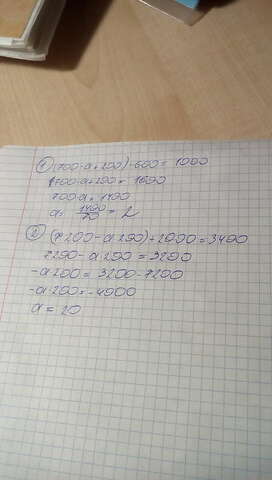 1) (700·a+200)-600=1000
700·a+200=1600
700·a=1400
a= 1400/70 = 2
2) (7200-a·200)+2000=3400
7200-a·200=3200
-a·200=3200-7200
-a·200=-4000
a=20